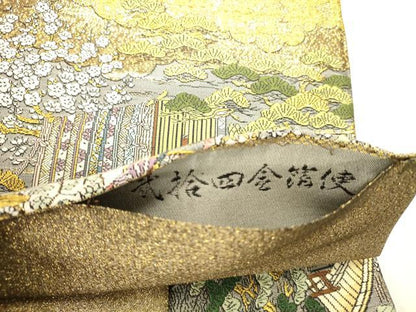 弐拾四金箔使